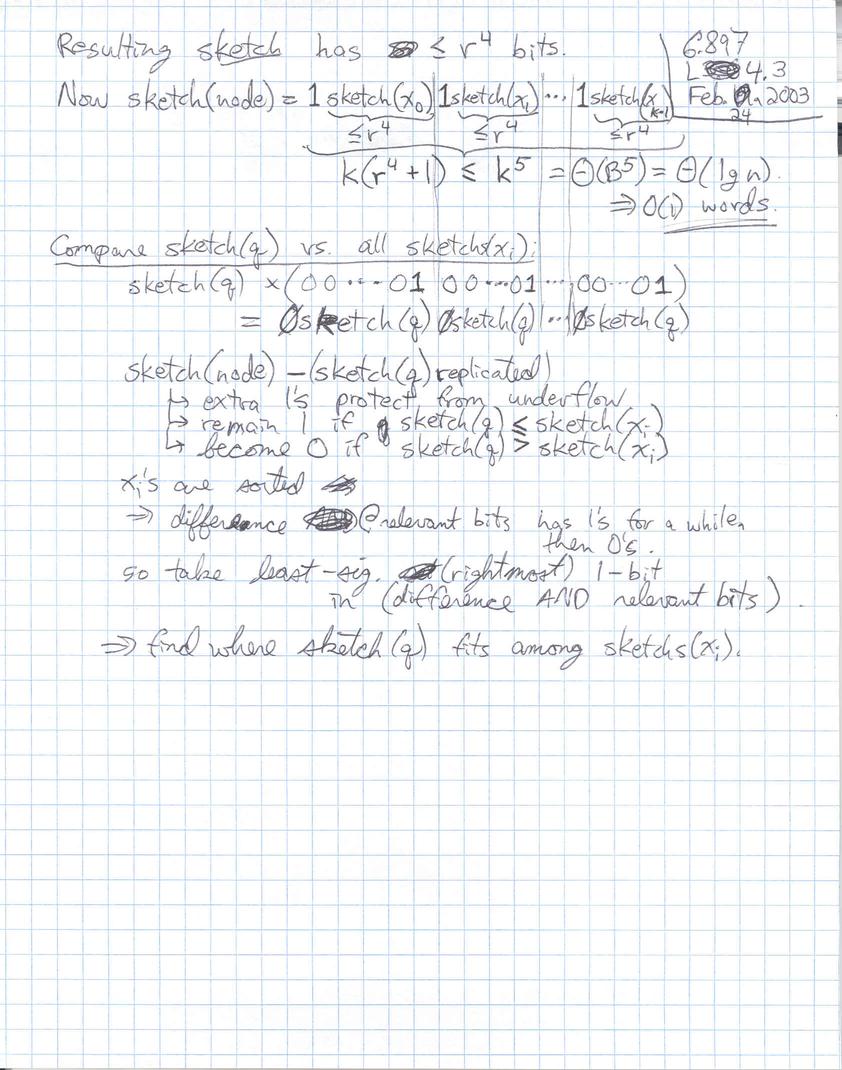 Resulting sketch has ≤ r⁴ bits.
6.897
L 4.3
Feb. 24 2003
Now sketch(node) = 1 sketch(x₀) 1sketch(x₁) ... 1 sketch(x_{k-1})
≤r⁴ ≤r⁴ ≤r⁴
k(r⁴+1) ≤ k⁵ = Θ(B⁵) = Θ(lg n).
⇒ O(1) words.
Compare sketch(q) vs. all sketchs(xᵢ):
sketch(q) × (00...01 00...01 ... 00...01)
= 0sketch(q) 0sketch(q) ... 0sketch(q)
sketch(node) - (sketch(q) replicated)
↳ extra 1's protect from underflow
↳ remain 1 if sketch(q) ≤ sketch(xᵢ)
↳ become 0 if sketch(q) > sketch(xᵢ)
xᵢ's are sorted
⇒ difference @ relevant bits has 1's for a while,
then 0's.
so take least-sig. (rightmost) 1-bit
in (difference AND relevant bits).
⇒ find where sketch(q) fits among sketchs(xᵢ).